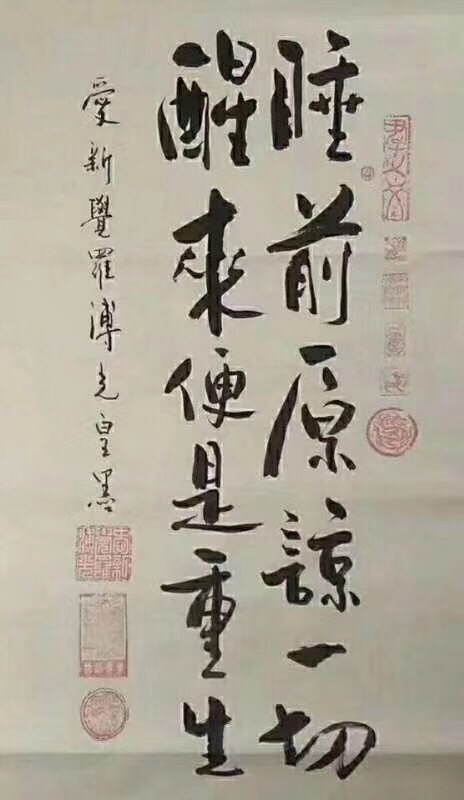 睡前原諒一切
醒來便是重生
愛新覺羅溥光皇墨